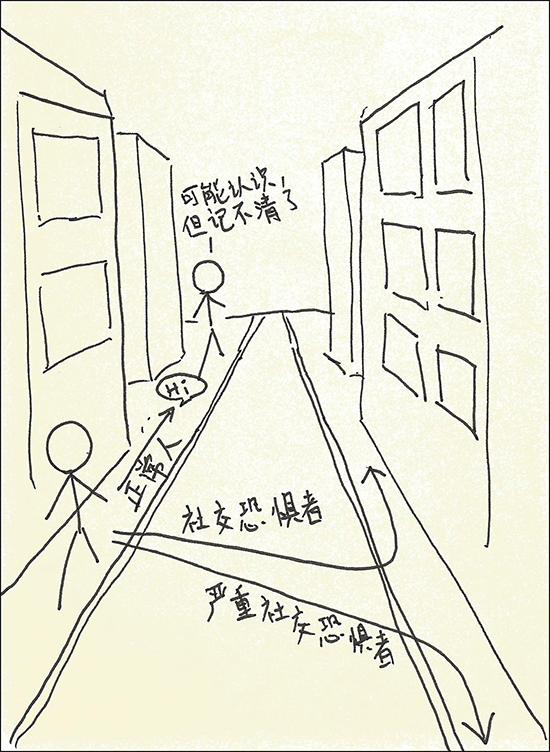 可能认识,
但记不清了
Hi
正常人
社交恐惧者
严重社交恐惧者